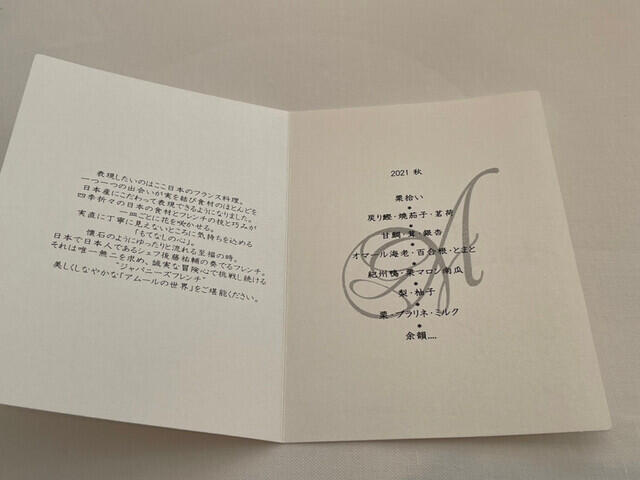 表現したいのはここ日本のフランス料理。
一つ一つの出会いが実を結び食材のほとんどを
日本産にこだわって表現できるようになりました。
四季折々の日本の食材とフレンチの技と巧みが
一皿ごとに花を咲かせる。
実直に丁寧に見えないところに気持ちを込める
「もてなしの心」。
懐石のようにゆったりと流れる至福の時。
日本で日本人であるシェフ後藤祐輔の奏でるフレンチ。
それは唯一無二を求め、誠実な冒険心で挑戦し続ける
"ジャパニーズフレンチ"
美しくしなやかな「アムールの世界」をご堪能ください。
2021 秋
栗拾い
戻り鰹・焼茄子・茗荷
甘鯛・茸・銀杏
オマール海老・百合根・とまと
紀州鴨・栗マロン南瓜
梨・柚子
栗・プラリネ・ミルク
余韻....
A